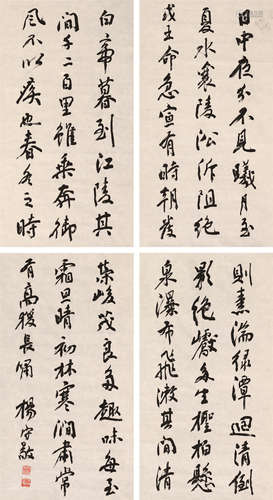 日中夜分不見曦月至
夏水襄陵沿泝阻絕
或王命急宣有時朝發
白帝暮到江陵其
間千二百里雖乘奔御
風不以疾也春冬之時
則素湍綠潭迴清倒
影絕巘多生檉柏懸
泉瀑布飛漱其間清
榮峻茂良多趣味每至
霜旦晴初林寒澗肅常
有高猨長嘯 楊守敬